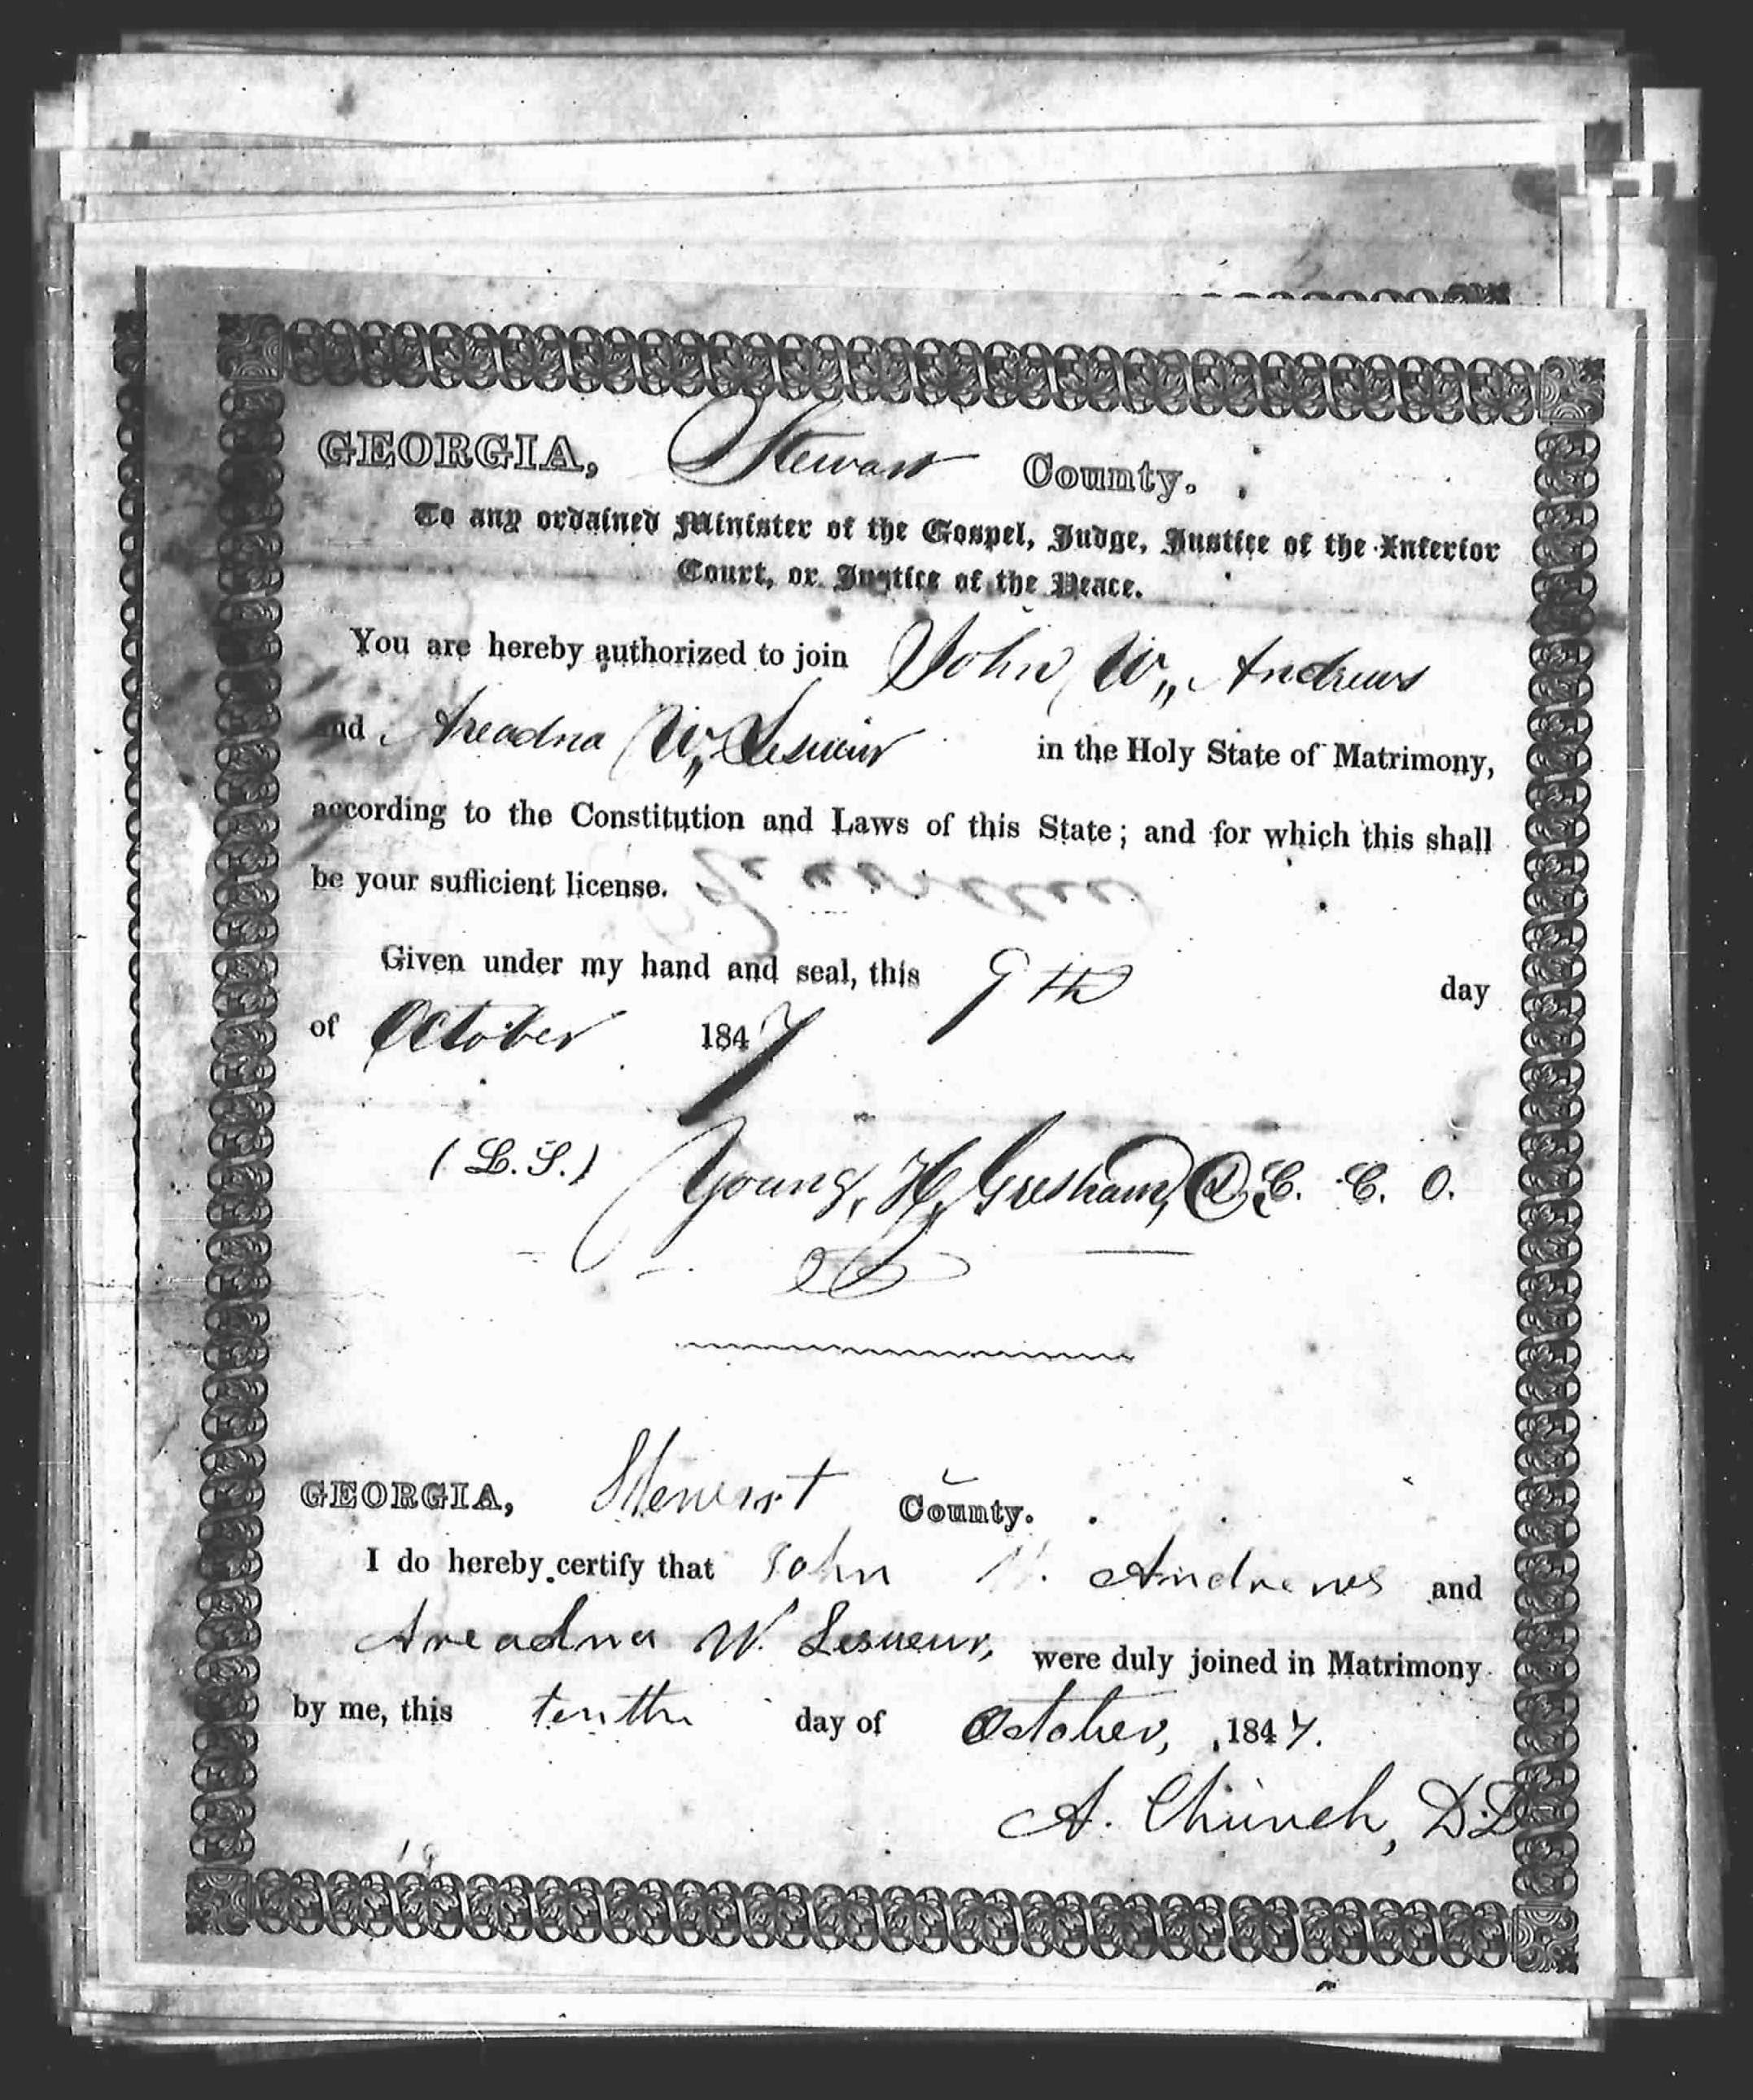 GEORGIA, Stewart County.
To any ordained Minister of the Gospel, Judge, Justice of the Inferior
Court, or Justice of the Peace.
You are hereby authorized to join John W,, Andrews
and Areadna W,, Lesueur in the Holy State of Matrimony,
according to the Constitution and Laws of this State; and for which this shall
be your sufficient license.
Given under my hand and seal, this 9th day
of October 1847
(L.S.) Young, H, Gresham, C. C. O.
GEORGIA, Stewart County.
I do hereby certify that John W. Andrews and
Areadna W. Lesueur, were duly joined in Matrimony
by me, this tenth day of October, 1847.
A. Church, D.D